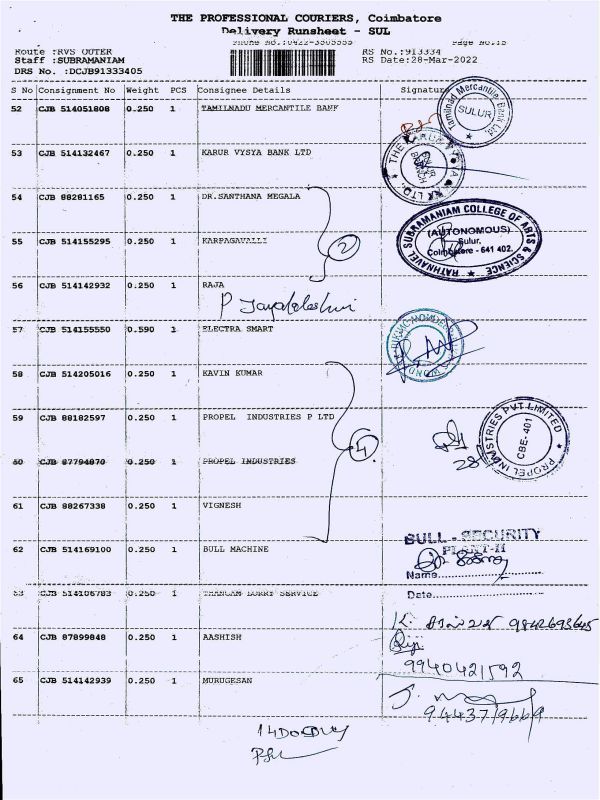 THE PROFESSIONAL COURIERS, Coimbatore
Delivery Runsheet - SUL
Phone No.:0422-3505555 Page No.:5
Route :RVS OUTER RS No.:913334
Staff :SUBRAMANIAM RS Date:28-Mar-2022
DRS No. :DCJB91333405
S No Consignment No Weight PCS Consignee Details Signature
52 CJB 514051808 0.250 1 TAMILNADU MERCANTILE BANK
Tamilnad Mercantile Bank Ltd.
SULUR
53 CJB 514132467 0.250 1 KARUR VYSYA BANK LTD
54 CJB 88281165 0.250 1 DR.SANTHANA MEGALA
RATHNAVEL SUBRAMANIAM COLLEGE OF ARTS & SCIENCE
(AUTONOMOUS)
Sulur,
Coimbatore - 641 402.
55 CJB 514155295 0.250 1 KARPAGAVALLI
2
56 CJB 514142932 0.250 1 RAJA
57 CJB 514155550 0.590 1 ELECTRA SMART
58 CJB 514205016 0.250 1 KAVIN KUMAR
59 CJB 88182597 0.250 1 PROPEL INDUSTRIES P LTD
PROPEL INDUSTRIES PVT. LIMITED
CBE- 401
4
28
60 CJB 87794870 0.250 1 PROPEL INDUSTRIES
61 CJB 88267338 0.250 1 VIGNESH
BULL - SECURITY
PLANT-II
62 CJB 514169100 0.250 1 BULL MACHINE
Name
63 CJB 514106783 0.250 1 THANGAM LORRY SERVICE
Date
64 CJB 87899848 0.250 1 AASHISH
9940421592
65 CJB 514142939 0.250 1 MURUGESAN
9443719669